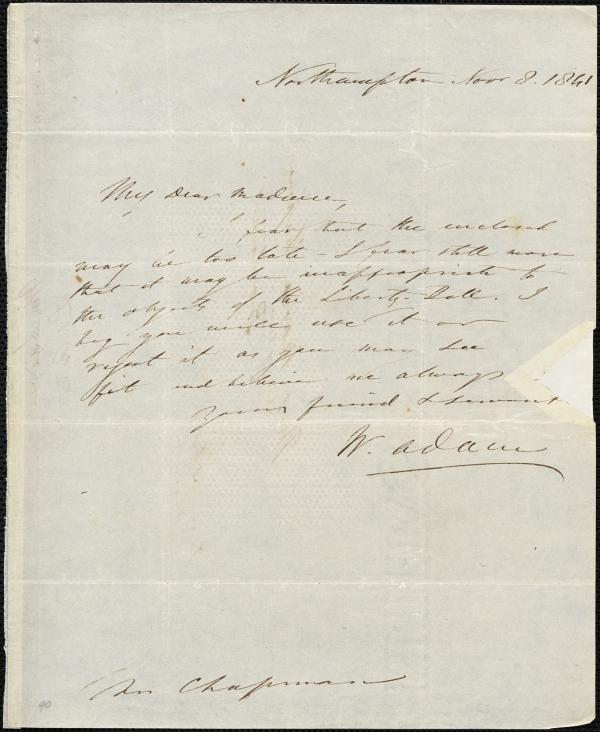 Northampton Novr 8. 1841
My Dear Madam,
I fear that the enclosed
may be too late - I fear still more
that it may be inappropriate to
the objects of the Liberty-Bell. I
beg you will use it or
reject it as you may see
fit and believe me always
Your friend & servant
W. Adam
Mrs Chapman
90